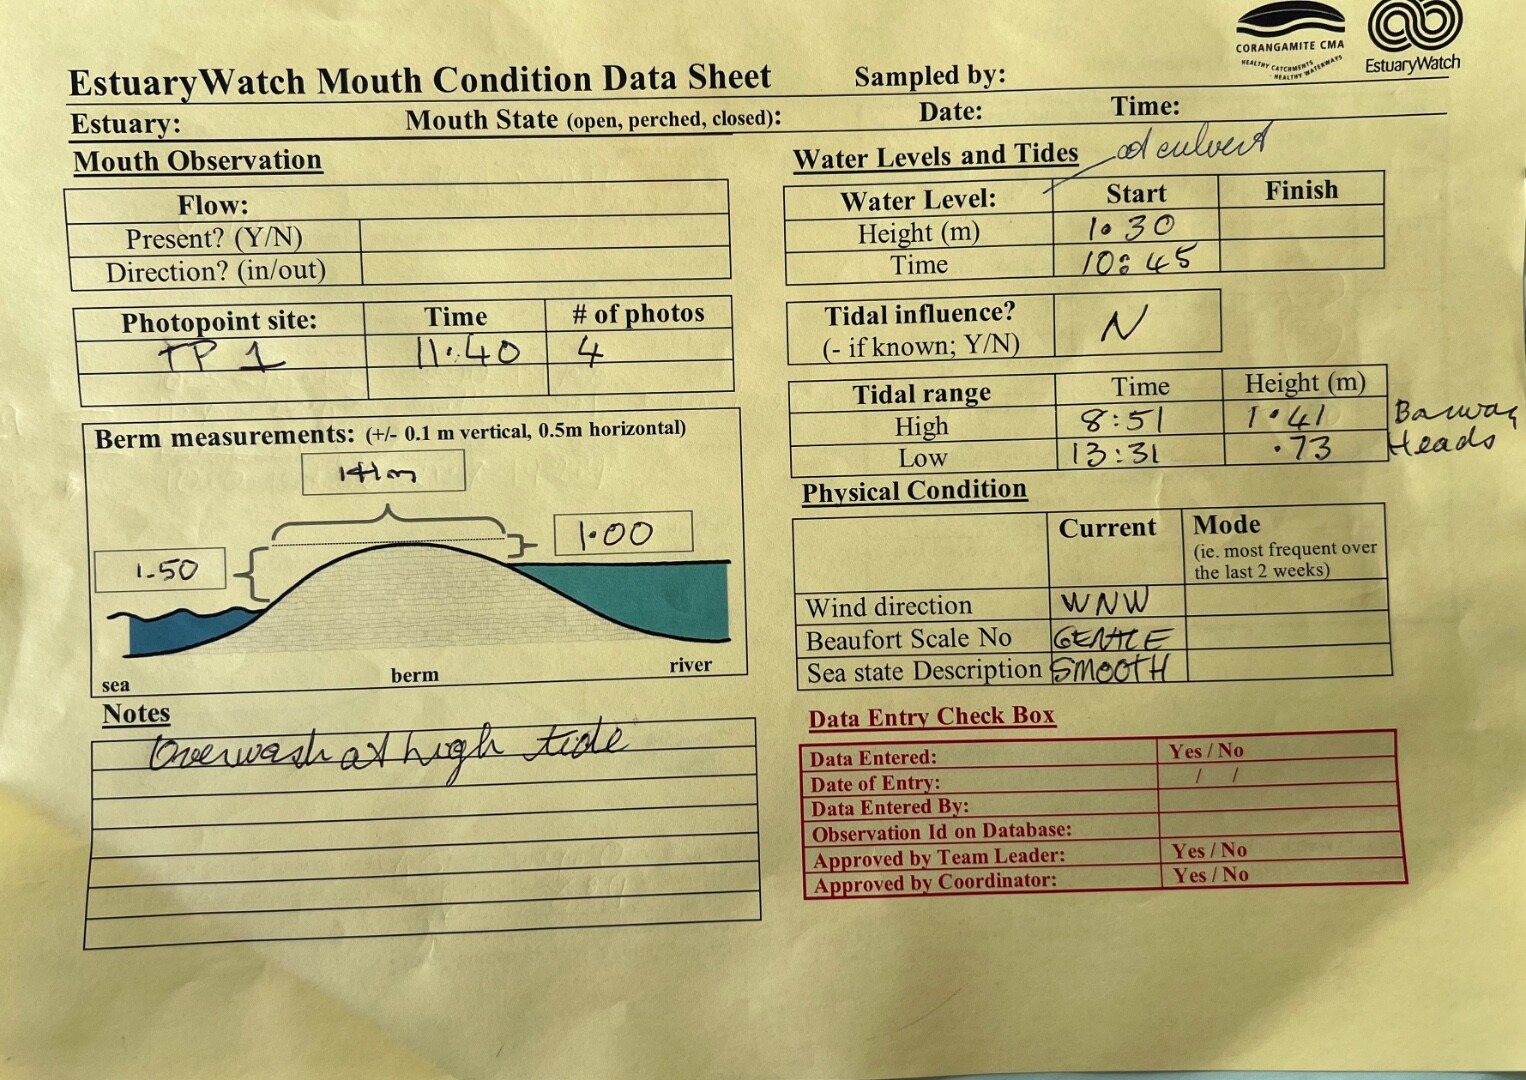 CORANGAMITE CMA
HEALTHY CATCHMENTS
- HEALTHY WATERWAYS
EstuaryWatch
EstuaryWatch Mouth Condition Data Sheet
Sampled by:
Estuary:
Mouth State (open, perched, closed):
Date:
Time:
Mouth Observation
Flow:
Present? (Y/N)
Direction? (in/out)
Photopoint site: Time # of photos
TP 1 11:40 4
Berm measurements: (+/- 0.1 m vertical, 0.5m horizontal)
14m
1.00
1.50
sea berm river
Notes
Overwash at high tide
Water Levels and Tides
at culvert
Water Level: Start Finish
Height (m) 1.30
Time 10:45
Tidal influence? N
(- if known; Y/N)
Tidal range Time Height (m)
High 8:51 1.41 Barwon
Low 13:31 .73 Heads
Physical Condition
Current Mode
(ie. most frequent over
the last 2 weeks)
Wind direction WNW
Beaufort Scale No GENTLE
Sea state Description SMOOTH
Data Entry Check Box
Data Entered: Yes / No
Date of Entry: / /
Data Entered By:
Observation Id on Database:
Approved by Team Leader: Yes / No
Approved by Coordinator: Yes / No